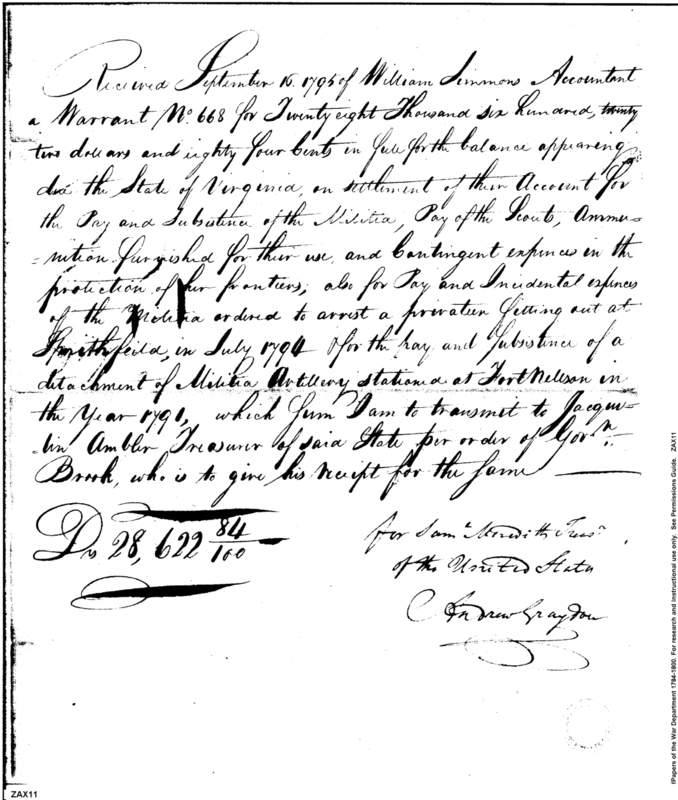 Received September 16 1795 of William Simmons Accountant
a Warrant No. 668 for Twenty eight Thousand six hundred, twenty
two dollars and eighty four Cents in full for the balance appearing
due the State of Virginia, on settlement of their Account for
the Pay and Subsistence of the Militia, Pay of the Scouts, Ammu=
=nition furnished for their use, and Contingent expences in the
protection of her frontiers; also for Pay and Incidental expences
of the Militia ordered to arrest a privatier fitting out at
Smithfeild, in July 1794 & for the pay and Subsistence of a
detachment of Militia Artillery stationed at Fort Nellson in
the Year 1791, which Sum I am to transmit to Jacque=
=lin Ambler Treasurer of said State per order of Govrn.
Brook, who is to give his receipt for the same
Ds 28,622 84/100
for Saml Meredith Treasr
of the United States
Andrew Graydon
ZAX11
Papers of the War Department 1784-1800. For research and instructional use only. See Permissions Guide. ZAX11